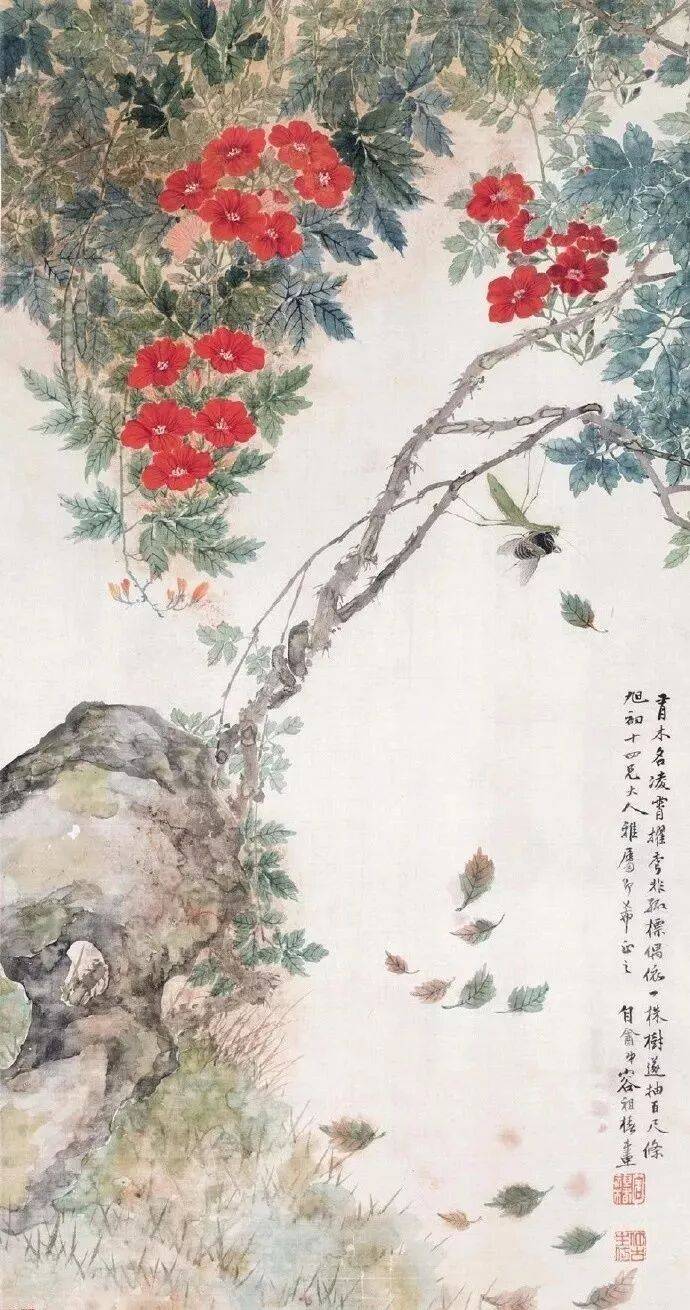 有木名凌霄擢秀非孤標偶依一株樹遂抽百尺條
旭初十四兄大人雅屬即希正之 容祖椿畫